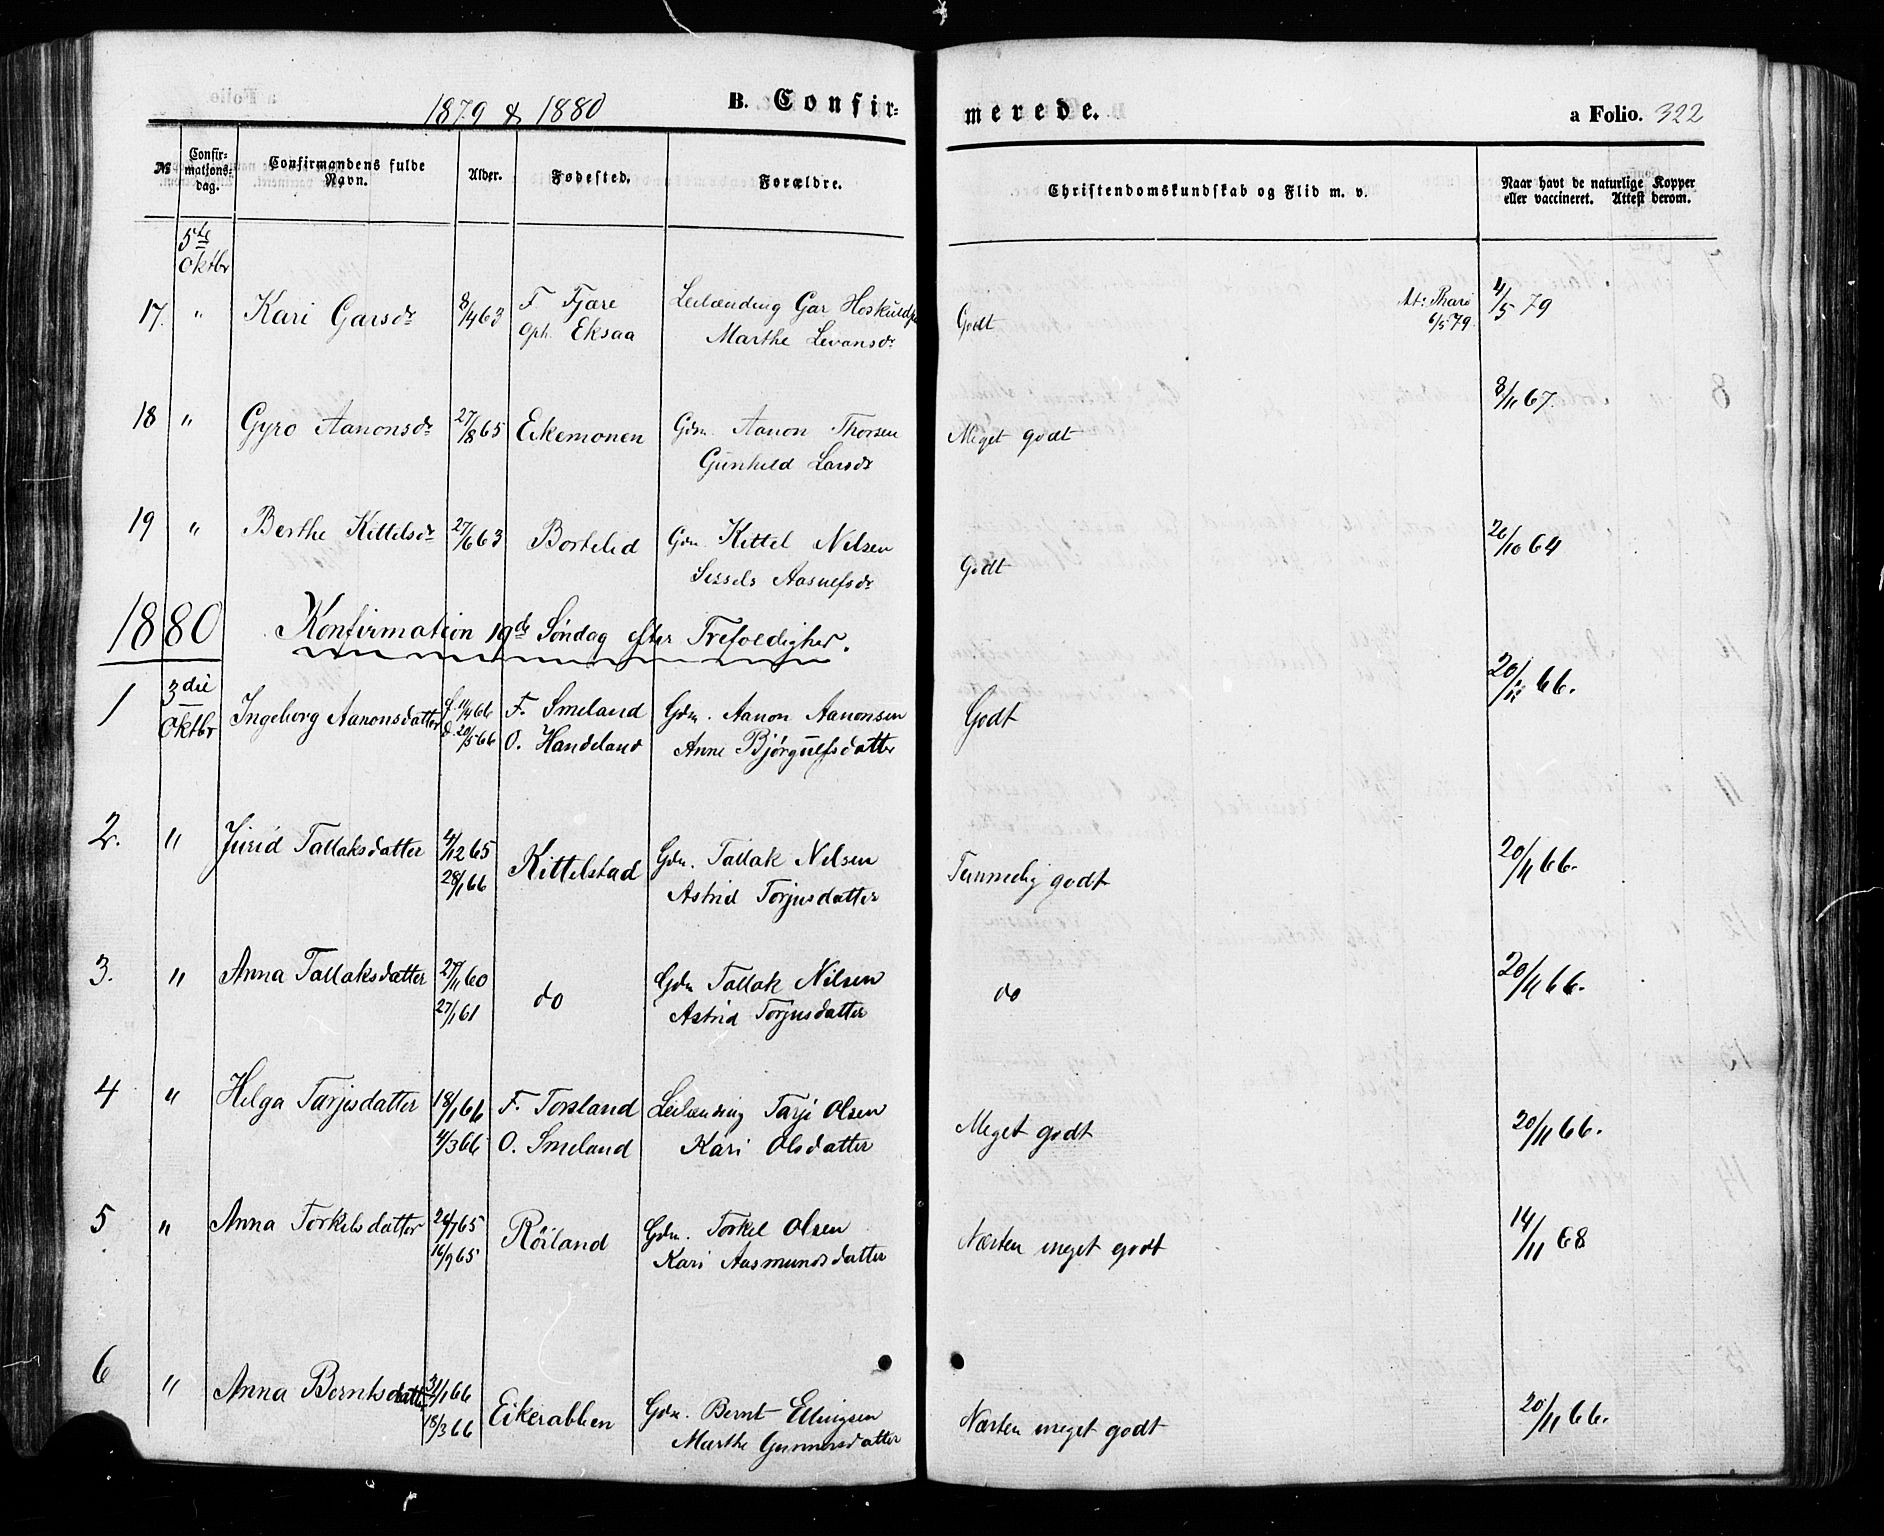 1879 & 1880 B. Confirmerede. a Folio. 322
№ Confirmationsdag. Confirmandens fulde Navn. Alder. Fødested. Forældre. Christendomskundskab og Flid m. v. Naar havt de naturlige Kopper eller vaccineret. Attest derom.
5te Oktbr
17. " Kari Garsdr 8/4 63 F. Fjære Leilænding Gar Godt At: 6/5 79. 4/5 79
Oph. Eksaa Marthe Levonsdr
18 " Gyro Aanonsdr 27/8 65 Eikemonen Gdm. Aanon Thorsen Meget godt 8/11 67.
Gunhild Larsdr
19 " Berthe Kittelsdr 27/6 63 Bortelid Gdm. Kittel Nilsen Godt 26/10 64
Sissels Aasulfsdr
1880 Konfirmation 19de Søndag efter Trefoldighed.
1 3die Oktbr Ingeborg Aanonsdatter f. 11/4 66 F. Smeland Gdm. Aanon Aanonsen Godt 20/11 66.
d. 20/5 66 O. Handeland Anne Bjørgulfsdatter
2. " Jurid Tallaksdatter 4/12 65 Kittelstad Gdm. Tallak Nilsen Temmelig godt 20/11 66.
28/1 66 Astrid Torjusdatter
3. " Anna Tallaksdatter 27/11 60 do Gdm Tallak Nilsen do 20/11 66.
27/1 61 Astrid Torjusdatter
4 " Helga Tarjisdatter 18/1 66 F. Torsland Leilænding Tarji Olsen Meget godt 20/11 66.
4/3 66 O. Smeland Kari Olsdatter
5 " Anna Torkelsdatter 24/7 65 Röiland Gdm. Torkel Olsen Næsten meget godt 14/11 68
16/9 65 Kari Aasmundsdatter
6 " Anna Berntsdatter 31/1 66 Eikerabben Gdm. Bernt Ellingsen Næsten meget godt 20/11 66.
18/3 66 Marthe Gunnersdatter